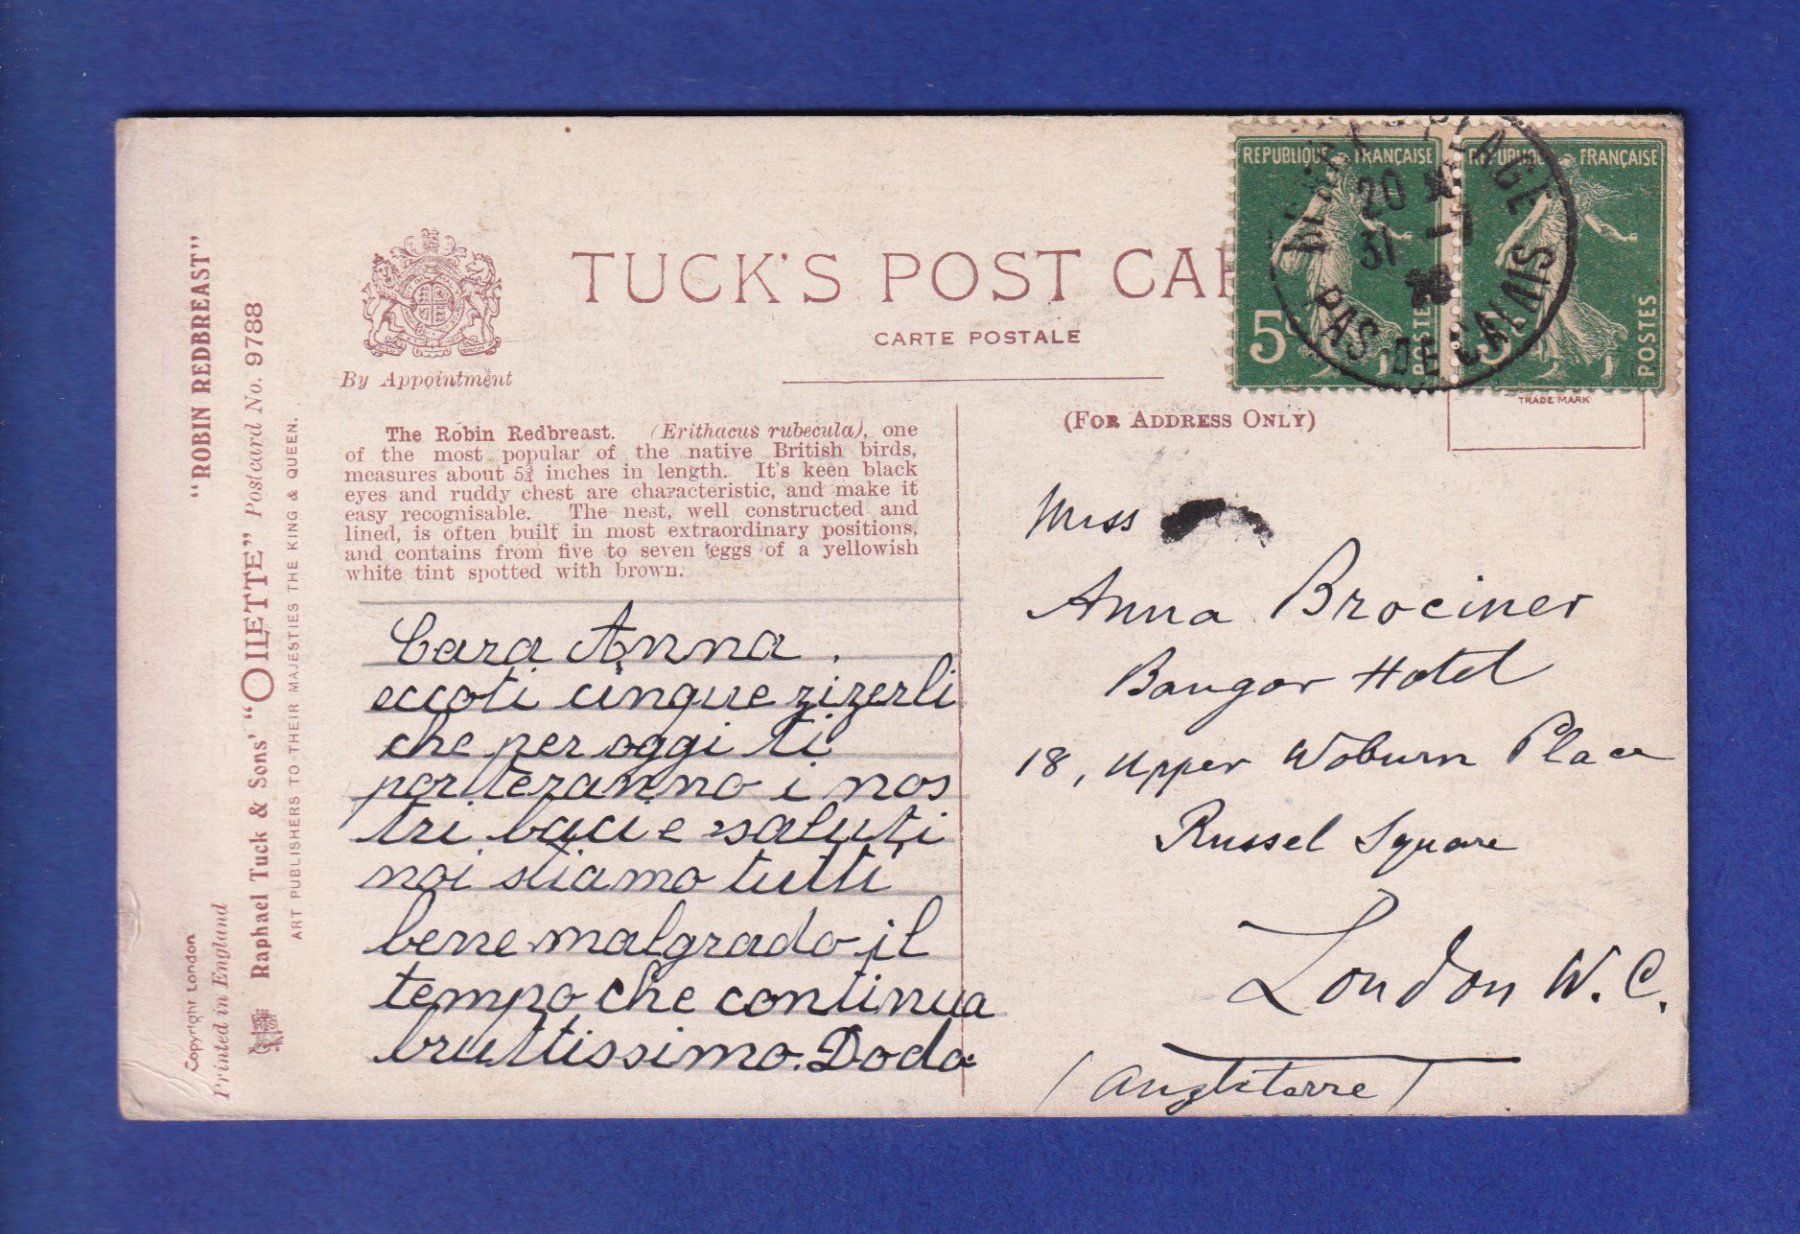 "ROBIN REDBREAST"
Raphael Tuck & Sons' "OILETTE" Postcard No. 9788
ART PUBLISHERS TO THEIR MAJESTIES THE KING & QUEEN.
Copyright London.
Printed in England
By Appointment
TUCK'S POST CAR
CARTE POSTALE
The Robin Redbreast. (Erithacus rubecula), one
of the most popular of the native British birds,
measures about 5¾ inches in length. It's keen black
eyes and ruddy chest are characteristic, and make it
easy recognisable. The nest, well constructed and
lined, is often built in most extraordinary positions,
and contains from five to seven eggs of a yellowish
white tint spotted with brown.
Cara Anna.
eccoti cinque zizerli
che per oggi ti
porteranno i nos
tri baci e saluti
noi stiamo tutti
bene malgrado il
tempo che continua
bruttissimo. Doda
REPUBLIQUE FRANÇAISE
5c
POSTES
REPUBLIQUE FRANÇAISE
POSTES
PLAGE
20
31 -7
PAS DE CALAIS
TRADE MARK
(FOR ADDRESS ONLY)
Miss
Anna Brociner
Bangor Hotel
18, Upper Woburn Place
Russel Square
London W.C.
(Angleterre)